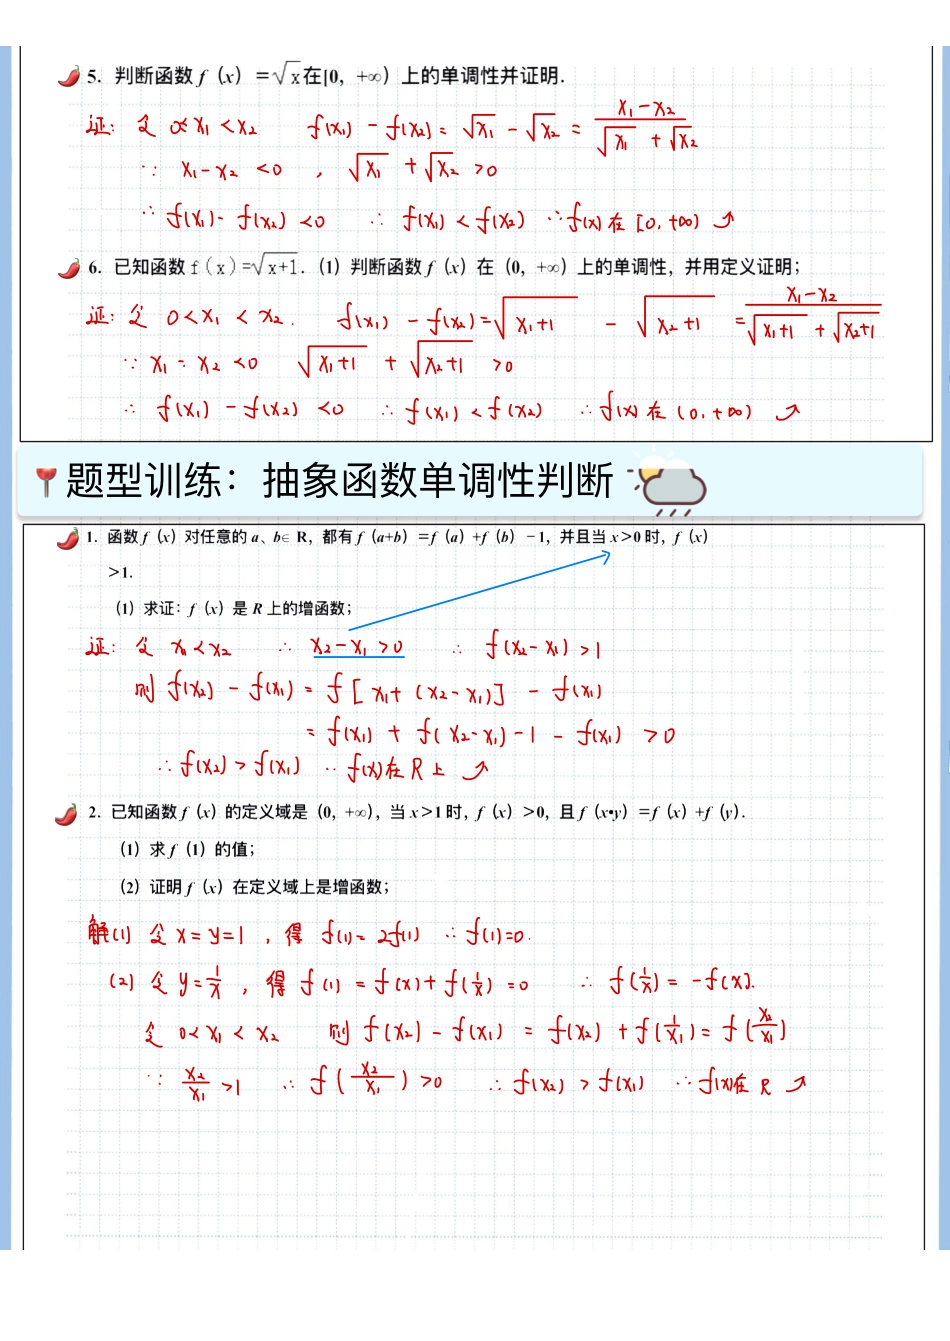 5. 判断函数 f（x）＝√x在[0，+∞）上的单调性并证明.
证：令 0≤x₁<x₂  f(x₁)－f(x₂)=√x₁－√x₂=(x₁－x₂)/(√x₁+√x₂)
∵ x₁－x₂<0，√x₁+√x₂>0
∴ f(x₁)－f(x₂)<0 ∴ f(x₁)<f(x₂) ∴f(x)在[0,+∞)↗
6. 已知函数f(x)=√x+1.（1）判断函数 f（x）在（0，+∞）上的单调性，并用定义证明；
证：令 0<x₁<x₂. f(x₁)－f(x₂)=√x₁+1－√x₂+1=(x₁－x₂)/(√x₁+1+√x₂+1)
∵ x₁－x₂<0 √x₁+1+√x₂+1>0
∴ f(x₁)－f(x₂)<0 ∴ f(x₁)<f(x₂) ∴f(x)在(0,+∞)↗
题型训练：抽象函数单调性判断
1. 函数 f（x）对任意的 a、b∈R，都有 f（a+b）＝f（a）+f（b）－1，并且当 x＞0 时，f（x）
＞1.
（1）求证：f（x）是 R 上的增函数；
证：令 x₁<x₂ ∴ x₂－x₁>0 ∴ f(x₂－x₁)>1
则 f(x₂)－f(x₁)=f[x₁+(x₂－x₁)]－f(x₁)
=f(x₁)+f(x₂－x₁)－1－f(x₁)>0
∴f(x₂)>f(x₁) ∴f(x)在R上↗
2. 已知函数 f（x）的定义域是（0，+∞），当 x＞1 时，f（x）＞0，且 f（x•y）＝f（x）+f（y）.
（1）求 f（1）的值；
（2）证明 f（x）在定义域上是增函数；
解(1) 令 x=y=1，得 f(1)=2f(1) ∴f(1)=0.
(2) 令 y=1/x，得 f(1)=f(x)+f(1/x)=0 ∴ f(1/x)=－f(x).
令 0<x₁<x₂ 则 f(x₂)－f(x₁)=f(x₂)+f(1/x₁)=f(x₂/x₁)
∵ x₂/x₁>1 ∴ f(x₂/x₁)>0 ∴ f(x₂)>f(x₁) ∴f(x)在R↗